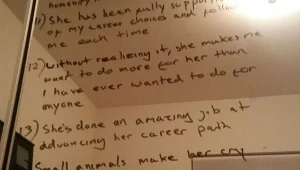 humanity
11) She has been fully support
of my career choices and follow
me each time
12) Without realizing it, she makes me
want to do more for her than
I have ever wanted to do for
anyone
13) She's done an amazing job at
advancing her career path
Small animals make her cry